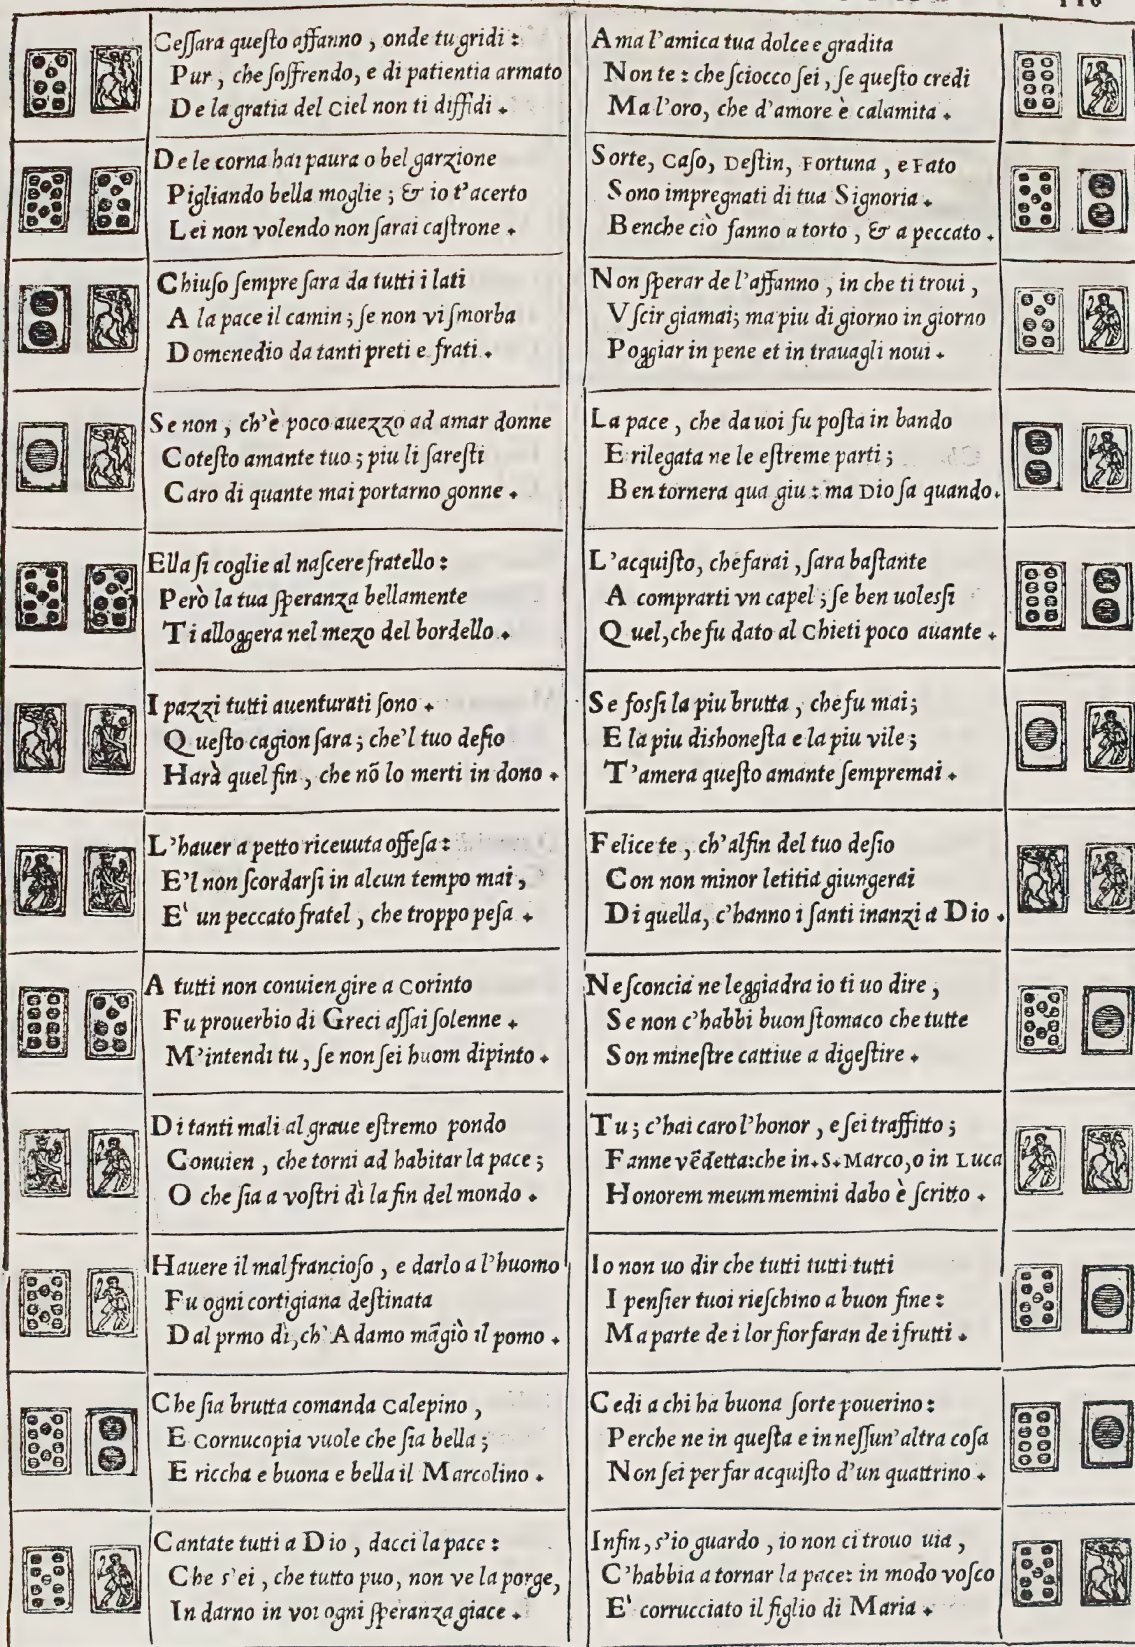 Ceſſara queſto affanno , onde tu gridi :
Pur , che ſoffrendo, e di patientia armato
De la gratia del Ciel non ti diffidi .
De le corna hai paura o bel garzione
Pigliando bella moglie ; & io t'acerto
Lei non volendo non ſarai caſtrone .
Chiuſo ſempre ſara da tutti i lati
A la pace il camin ; ſe non vi ſmorba
Domenedio da tanti preti e frati .
Se non , ch'è poco auezzo ad amar donne
Coteſto amante tuo ; piu li ſareſti
Caro di quante mai portarno gonne .
Ella ſi coglie al naſcere fratello :
Però la tua ſperanza bellamente
Ti alloggera nel mezo del bordello .
I pazzi tutti auenturati ſono .
Queſto cagion ſara ; che'l tuo deſio
Harà quel fin , che nō lo merti in dono .
L'hauer a petto riceuuta offeſa :
E'l non ſcordarſi in alcun tempo mai ,
E' un peccato fratel , che troppo peſa .
A tutti non conuien gire a Corinto
Fu prouerbio di Greci aſſai ſolenne .
M'intendi tu , ſe non ſei huom dipinto .
Di tanti mali al graue eſtremo pondo
Conuien , che torni ad habitar la pace ;
O che ſia a voſtri dì la fin del mondo .
Hauere il mal francioſo , e darlo a l'huomo
Fu ogni cortigiana deſtinata
Dal prmo di, ch' Adamo māgiò il pomo .
Che ſia brutta comanda Calepino ,
E Cornucopia vuole che ſia bella ;
E riccha e buona e bella il Marcolino .
Cantate tutti a Dio , dacci la pace :
Che s'ei , che tutto puo, non ve la porge,
In darno in voi ogni ſperanza giace .
Ama l'amica tua dolce e gradita
Non te : che ſciocco ſei , ſe queſto credi
Ma l'oro, che d'amore è calamita .
Sorte, Caſo, Deſtin, Fortuna , e Fato
Sono impregnati di tua Signoria .
Benche ciò fanno a torto , & a peccato .
Non ſperar de l'affanno , in che ti troui ,
Vſcir giamai; ma piu di giorno in giorno
Poggiar in pene et in trauagli noui .
La pace , che da uoi fu poſta in bando
E rilegata ne le eſtreme parti ;
Ben tornera qua giu : ma Dio ſa quando.
L'acquiſto, che farai , ſara baſtante
A comprarti vn capel ; ſe ben uoleſſi
Quel, che fu dato al Chieti poco auante .
Se foſſi la piu brutta , che fu mai ;
E la piu dishoneſta e la piu vile ;
T'amera queſto amante ſempremai .
Felice te , ch'alfin del tuo deſio
Con non minor letitia giungerai
Di quella, c'hanno i ſanti inanzi a Dio .
Ne ſconcia ne leggiadra io ti uo dire ,
Se non c'habbi buon ſtomaco che tutte
Son mineſtre cattiue a digeſtire .
Tu ; c'hai caro l'honor , e ſei traffitto ;
Fanne vēdetta:che in.S.Marco,o in Luca
Honorem meum memini dabo è ſcritto .
Io non uo dir che tutti tutti tutti
I penſier tuoi rieſchino a buon fine :
Ma parte de i lor fior faran de i frutti .
Cedi a chi ha buona ſorte pouerino :
Perche ne in queſta e in neſſun'altra coſa
Non ſei per far acquiſto d'un quattrino .
Infin, s'io guardo , io non ci trouo uia ,
C'habbia a tornar la pace: in modo voſco
E' corrucciato il figlio di Maria .